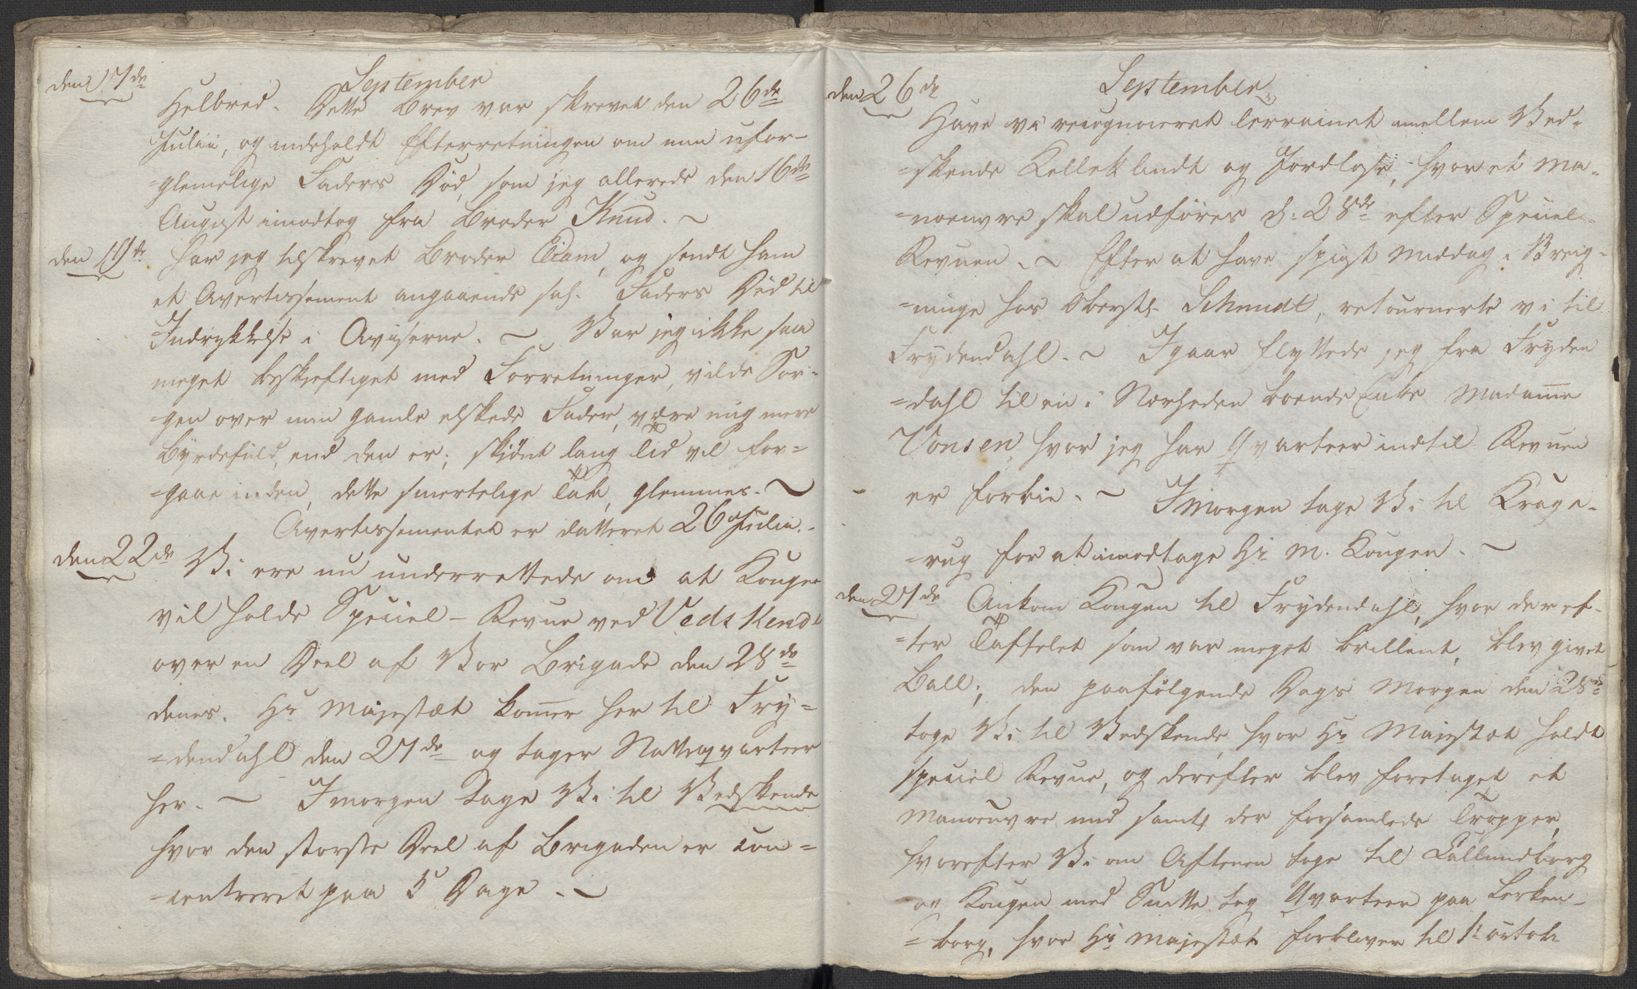 September
den 17de Helbred. Dette Brev var skrevet den 26de
Julii, og indeholdt Efterretningen om min ufor-
=glemelige Faders Død, som jeg allerede den 16de
August imodtog fra Broder Knud. ~
den 19de Har jeg tilskrevet Broder og sendt ham
et Avertissement angaaende sal. Faders Død til
Indrykkelse i Aviserne. ~ Var jeg ikke saa
meget beskjeftiget med Forretninger, vilde Sor-
=gen over min gamle elskede Fader, være mig mere
Byrdefuld, end den er; skjønt lang Tid vil for-
=gaae inden, dette smertelige Tab, glemmes. ~
Avertissementet er datteret 26 Julii.
den 22de Vi ere nu underrettede om at Kongen
vil holde Speciel-Revue ved Vedskend
over en Deel af Vor Brigade den 28de
denes. Hs Majestæt kom̅er her til Fry=
=dendahl den 27de og tager Natteqvarteer
her. ~ Imorgen tage Vi til Vedskende
hvor den største Deel af Brigaden er con=
=centreret paa 5 Dage. ~
September.
den 26de Have vi recognosceret terrainet imellem Ved=
=skende Kelleklindt og Jordløse, hvor et Ma=
=noeuvre skal udføres d: 28de efter Speciel-
Revuen. ~ Efter at have spiist Middag i Breg-
=ninge hos Oberstl. Schmidt, retournerte vi til
Frydendahl. ~ Igaar flyttede jeg fra Fryden
=dahl til en i Nærheden boende Enke Madam̅e
Vonsen, hvor jeg har Qvarteer indtil Revuen
er forbie. ~ Imorgen tage Vi til Krage-
=rug for at imodtage Hs M. Kongen. ~
den 27de Ankom Kongen til Frydendahl, hvor der ef-
=ter Taffelet som var meget brillent, blev givet
Ball; den paafølgende Dags Morgen den 28de
toge Vi til Vedskende, hvor Hs Majestæt holdt
speciel Revue, og derefter blev foretaget et
Manoeuvre med samtl. der forsamlede Tropper,
hvorefter Vi om Aftenen toge til Callundborg
og Kongen med Suitte tog Qvarteer paa Lerken-
=borg, hvor Hs Majestæt forbliver til 1t octob.